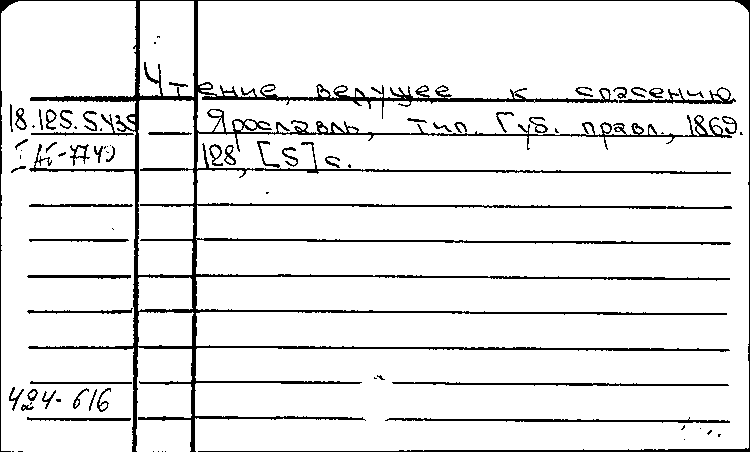 Чтение, ведущее к спасению
18.125.5.435 Ярославль, тип. Губ. правл., 1869.
128, [5] с.
424-616